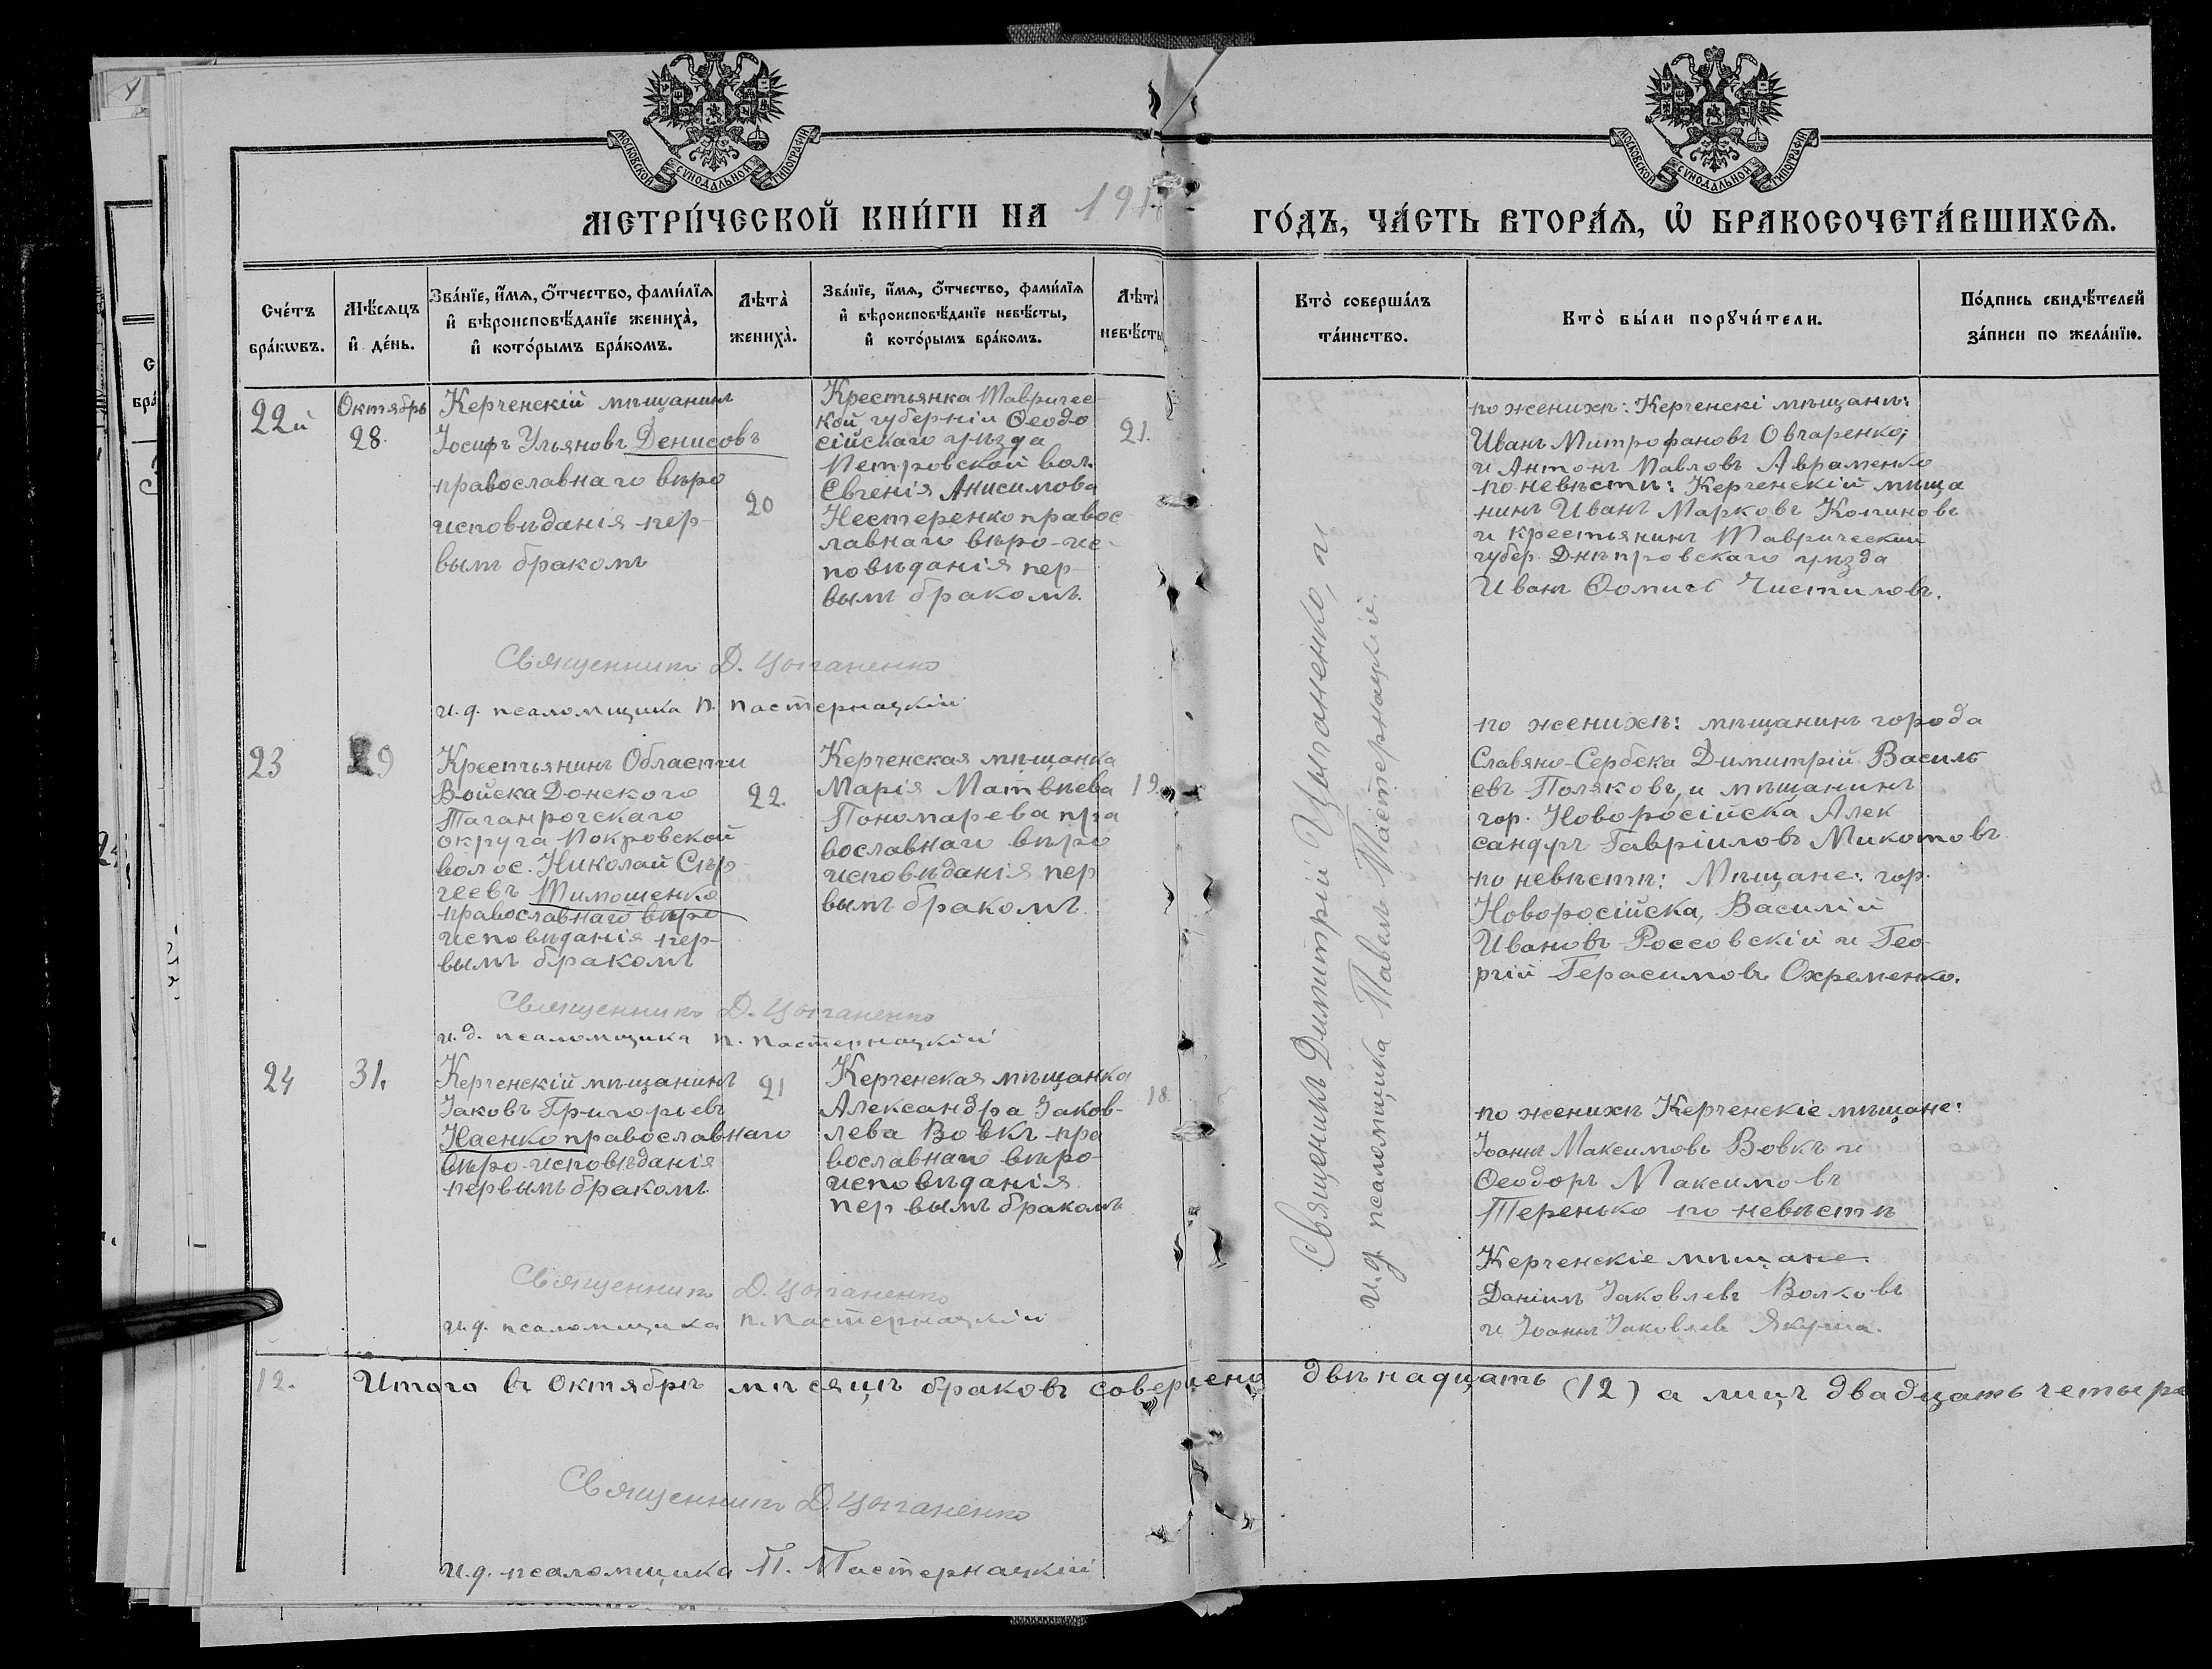 МОСКОВСКОЙ СѴНОДАЛЬНОЙ ТИПОГРАФІИ
МОСКОВСКОЙ СѴНОДАЛЬНОЙ ТИПОГРАФІИ
МЕТРИ́ЧЕСКОЙ КНИ́ГИ НА 191
ГО́ДЪ, ЧА́СТЬ ВТОРА́Ѧ, Ѽ БРАКОСОЧЕТА́ВШИХСѦ.
Сче́тъ бра́кѡвъ.
Мѣ́сѧцъ и҆ де́нь.
Зва́нїе, и҆́мѧ, ѻ҆́тчество, фами́лїѧ
и҆ вѣроисповѣ́данїе жениха̀,
и҆ кото́рымъ бра́комъ.
Лѣта̀ жениха̀.
Зва́нїе, и҆́мѧ, ѻ҆́тчество, фами́лїѧ
и҆ вѣроисповѣ́данїе невѣ́сты,
и҆ кото́рымъ бра́комъ.
Лѣта̀ невѣ́сты
Кто̀ соверша́лъ
та́инство.
Кто̀ бы́ли порꙋчи́тели.
По́дпись свидѣ́телей
за́писи по жела́нїю.
22й
Октябрь
28.
Керченскій мѣщанинъ
Іосифъ Ульяновъ Денисовъ
православнаго вѣро
исповѣданія пер-
вымъ бракомъ
20
Крестьянка Тавричес
кой губерніи Ѳеодо
сійскаго уѣзда
Петровской вол.
Евгенія Анисимова
Нестеренко правос
лавнаго вѣро-ис-
повѣданія пер-
вымъ бракомъ.
21.
по женихѣ: Керченскі мѣщанѣ:
Иванъ Митрофановъ Овчаренко;
и Антонъ Павловъ Авраменко
по невѣстѣ: Керченскій мѣща
нинъ Иванъ Марковъ
и крестьянинъ Таврической
губер. Днѣпровскаго уѣзда
Иванъ
Священникъ Д. Цыганенко
и.д. псаломщика П. Пастернацкій
23
29
Крестьянинъ Области
Войска Донского
Таганрогскаго
округа Покровской
волос. Николай Сѣр-
геевъ Тимошенко
православнаго вѣро
исповѣданія пер-
вымъ бракомъ
22.
Керченская мѣщанка
Марія Матвѣева
Пономарева пра
вославнаго вѣро
исповѣданія пер
вымъ бракомъ.
19.
по женихѣ: мѣщанинъ города
Славяно-Сербска Димитрій Василь
евъ Поляковъ, и мѣщанинъ
гор. Новоросійска Алек
сандръ Гавріиловъ
по невѣстѣ: Мѣщане: гор.
Новоросійска, Василій
Ивановъ Россовскій и Гео-
ргій Герасимовъ Охременко.
Священникъ Д. Цыганенко
и.д. псаломщика П. Пастернацкій
24
31.
Керченскій мѣщанинъ
Іаковъ Григорьевъ
православнаго
вѣро-исповѣданія
первымъ бракомъ.
21
Керченская мѣщанка
Александра Іаков-
лева Вовкъ пра
вославнаго вѣро-
исповѣданія
первымъ бракомъ
18
по женихѣ Керченскіе мѣщане:
Іоаннъ Максимовъ Вовкъ и
Ѳеодоръ Максимовъ
Теренько по невѣстѣ
Керченскіе мѣщане.
Даніилъ Іаковлевъ Волковъ
и Іоаннъ Іаковлевъ
Священникъ Д. Цыганенко
и.д. псаломщика П. Пастернацкій
Священникъ Димитрій Цыганенко, и
и.д. псаломщика Павелъ Пастернацкій.
12. Итого въ октябрѣ мѣсяцѣ браковъ совершено двѣнадцать (12) а лицъ двадцать четыре
Священникъ Д. Цыганенко
и.д. псаломщика П. Пастернацкій